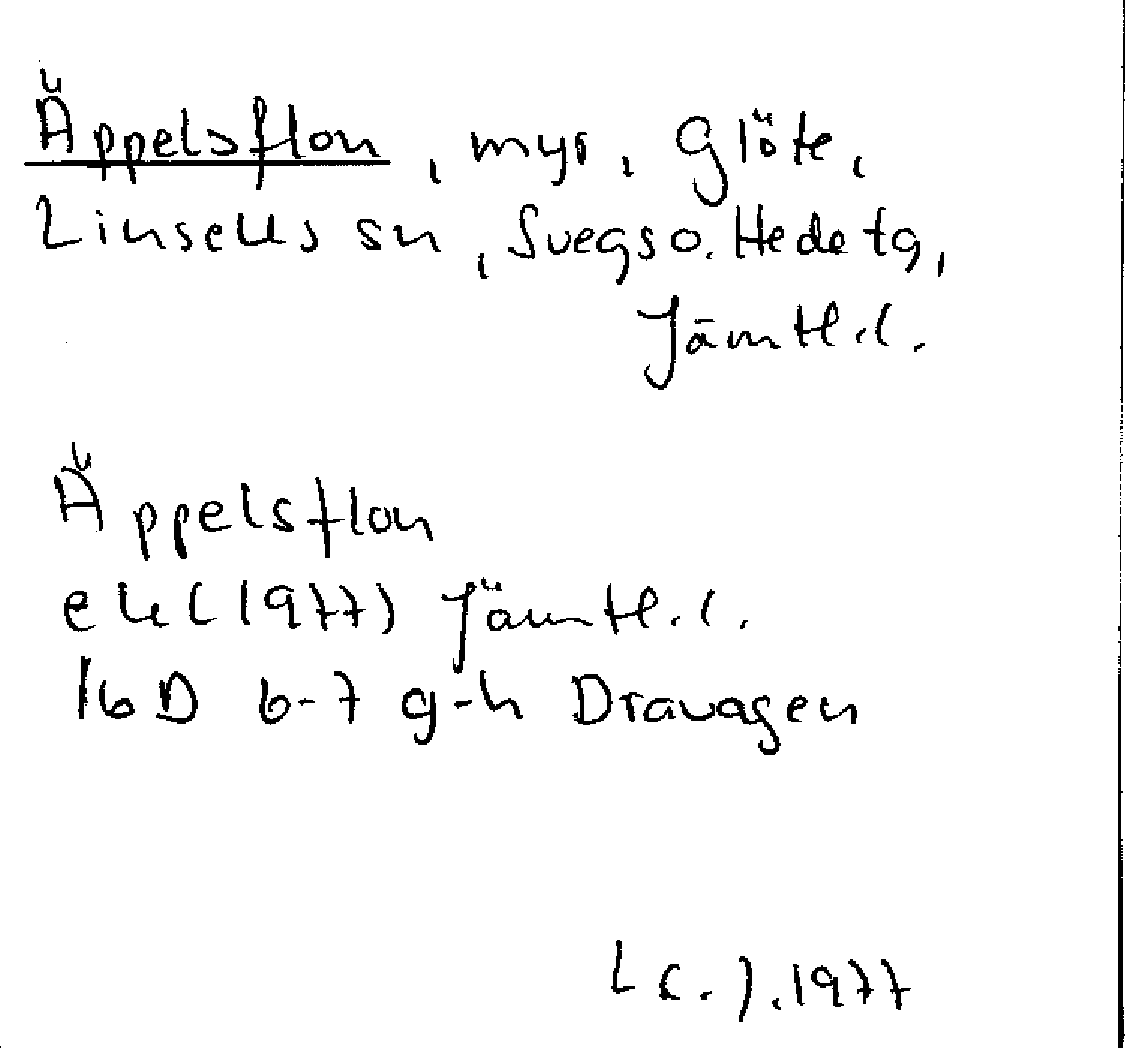 Äppelsflon, myr, Glöte,
Linsells sn, Svegs o. Hede tg,
Jämtl. l.
Äppelsflon
ek (1977) Jämtl. l.
16D 6-7 g-h Dravagen
1977